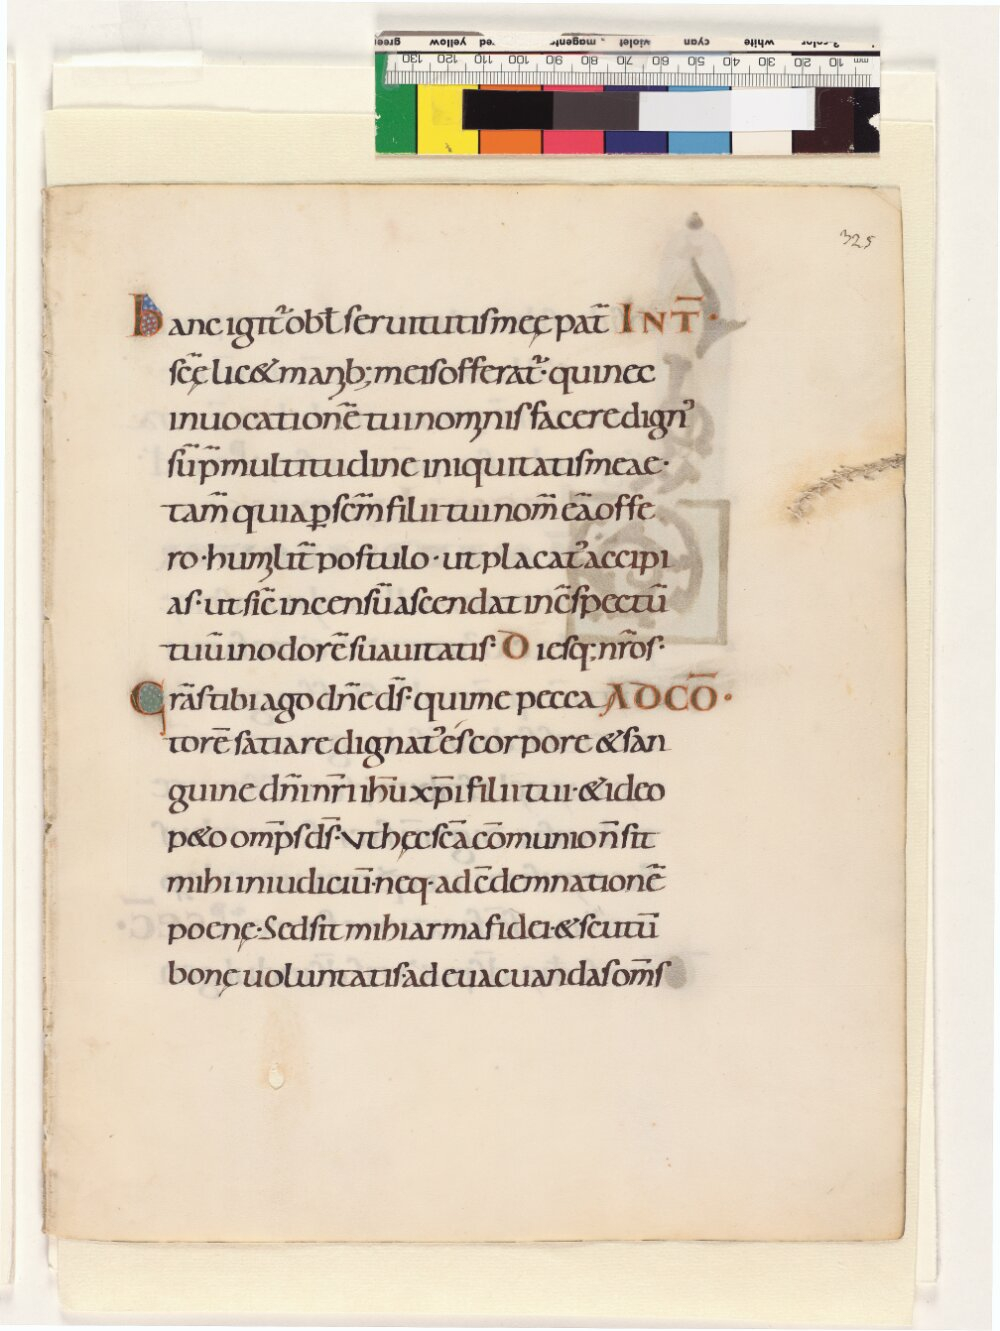 green yellow red magenta violet cyan white 3-color
mm 10 20 30 40 50 60 70 80 90 100 110 120 130
325
hanc igit᷑ oblꞇ̄ seruitutis meę pat̄ INT̄·
sc̄ę lic& manꝫ b; meis offerat᷑· qui nec
inuocationē tui nomꝫnis facere dign᷒
sū p̄ multitudine iniquitatis meae·
tam̄ quia ꝑ scm̄ filii tui nom̄ eā offe
ro· humꝫlit̄ postulo· ut placat᷒ accipi
as· ut sic̄ incensū ascendat in c̄spectū
tuū in odorē suauitatis· Diesq; nr̄os·
Grās tibi ago dn̄e ds̄· qui me pecca AD CŌ·
torē satiare dignat᷒ és corpore & san
guine dn̄i nr̄i ih̄u xp̄i filii tui· & ideo
p&o omp̄s ds̄· vt hęc sc̄a cōmunio n̄ sit
mihi in iudiciū· neq· ad c̄demnationē
poenę· Sed sit mihi arma fidei· & scutū
bonę uoluntatis ad euacuandas om̄s